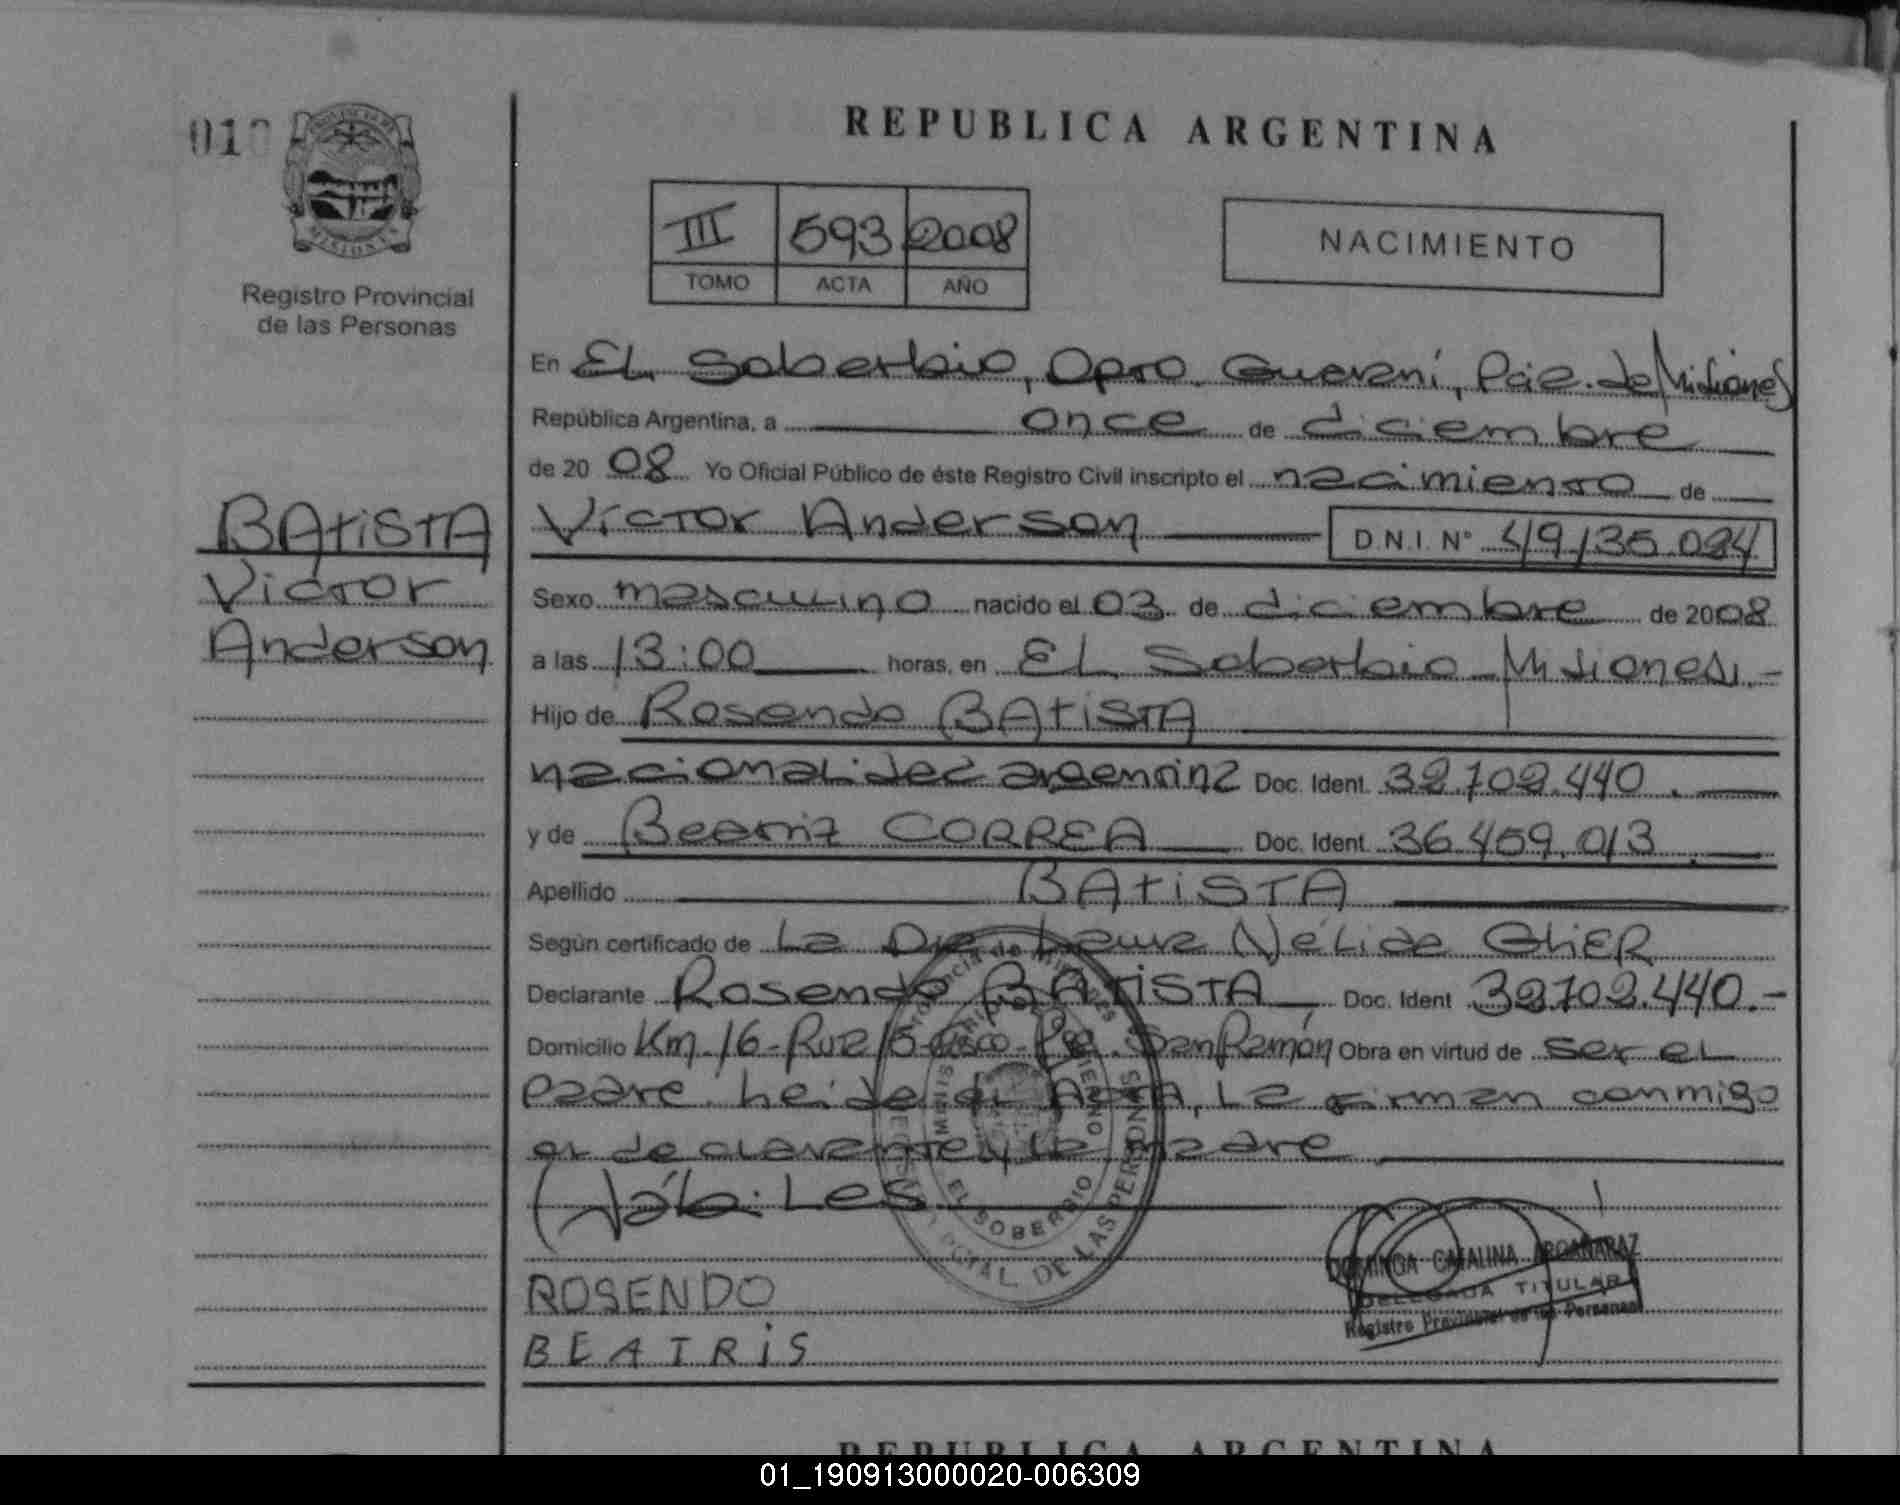 010
MISIONES
Registro Provincial
de las Personas
BAtiSTA
Victor
Anderson
REPUBLICA ARGENTINA
III 593 2008
TOMO ACTA AÑO
NACIMIENTO
En EL Soberbio, Dpto. Guaraní, Pcia. de Misiones
República Argentina, a once de diciembre
de 20 08 Yo Oficial Público de éste Registro Civil inscripto el nacimiento de
Víctor Anderson D.N.I. N° 49.135.024
Sexo masculino nacido el 03 de diciembre de 2008
a las 13:00 horas, en EL Soberbio Misiones.-
Hijo de Rosendo BAtiSTA
nacionalidad argentina Doc. Ident. 32.702.440.
y de Beatriz CORREA Doc. Ident. 36.459.013.
Apellido BAtiSTA
Según certificado de La Dra Laura Nélida GLIER
Declarante Rosendo BAtiSTA Doc. Ident 32702.440.-
Domicilio Km. 16- Ruta 15 San Ramón Obra en virtud de ser el
padre. Leida el ActA, La firman conmigo
el declarante y la madre
Vale: Les
Provincia de Misiones
EL SOBERBIO
DE LAS PERSONAS
ROSENDO
BEATRiS
DOMINGA CATALINA ARGAÑARAZ
DELEGADA TITULAR
Registro Provincial de las Personas
REPUBLICA ARGENTINA
01_190913000020-006309